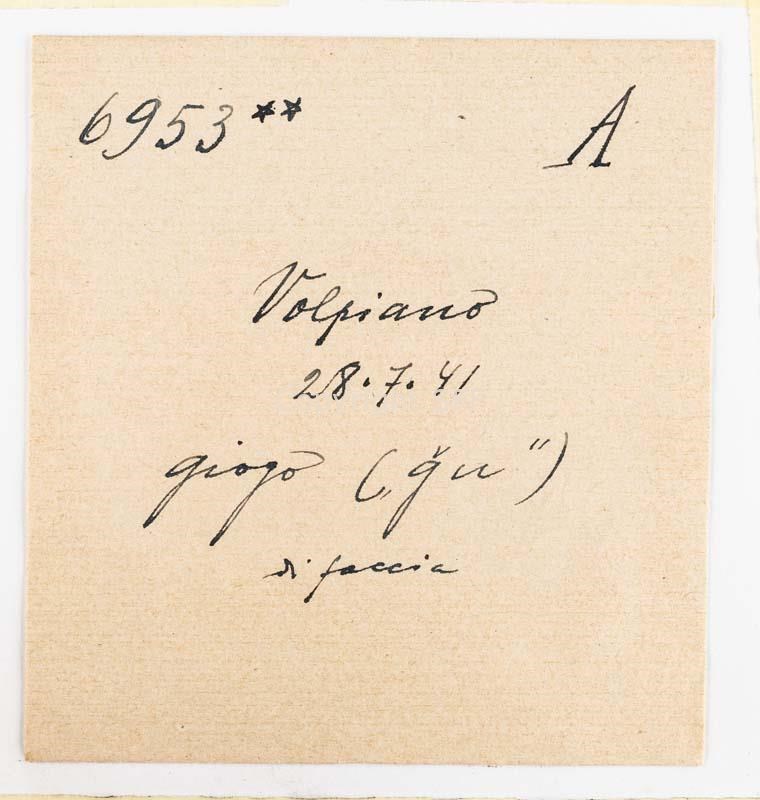 6953** A
Volpiano
28.7.41
giogo („ğu")
di faccia